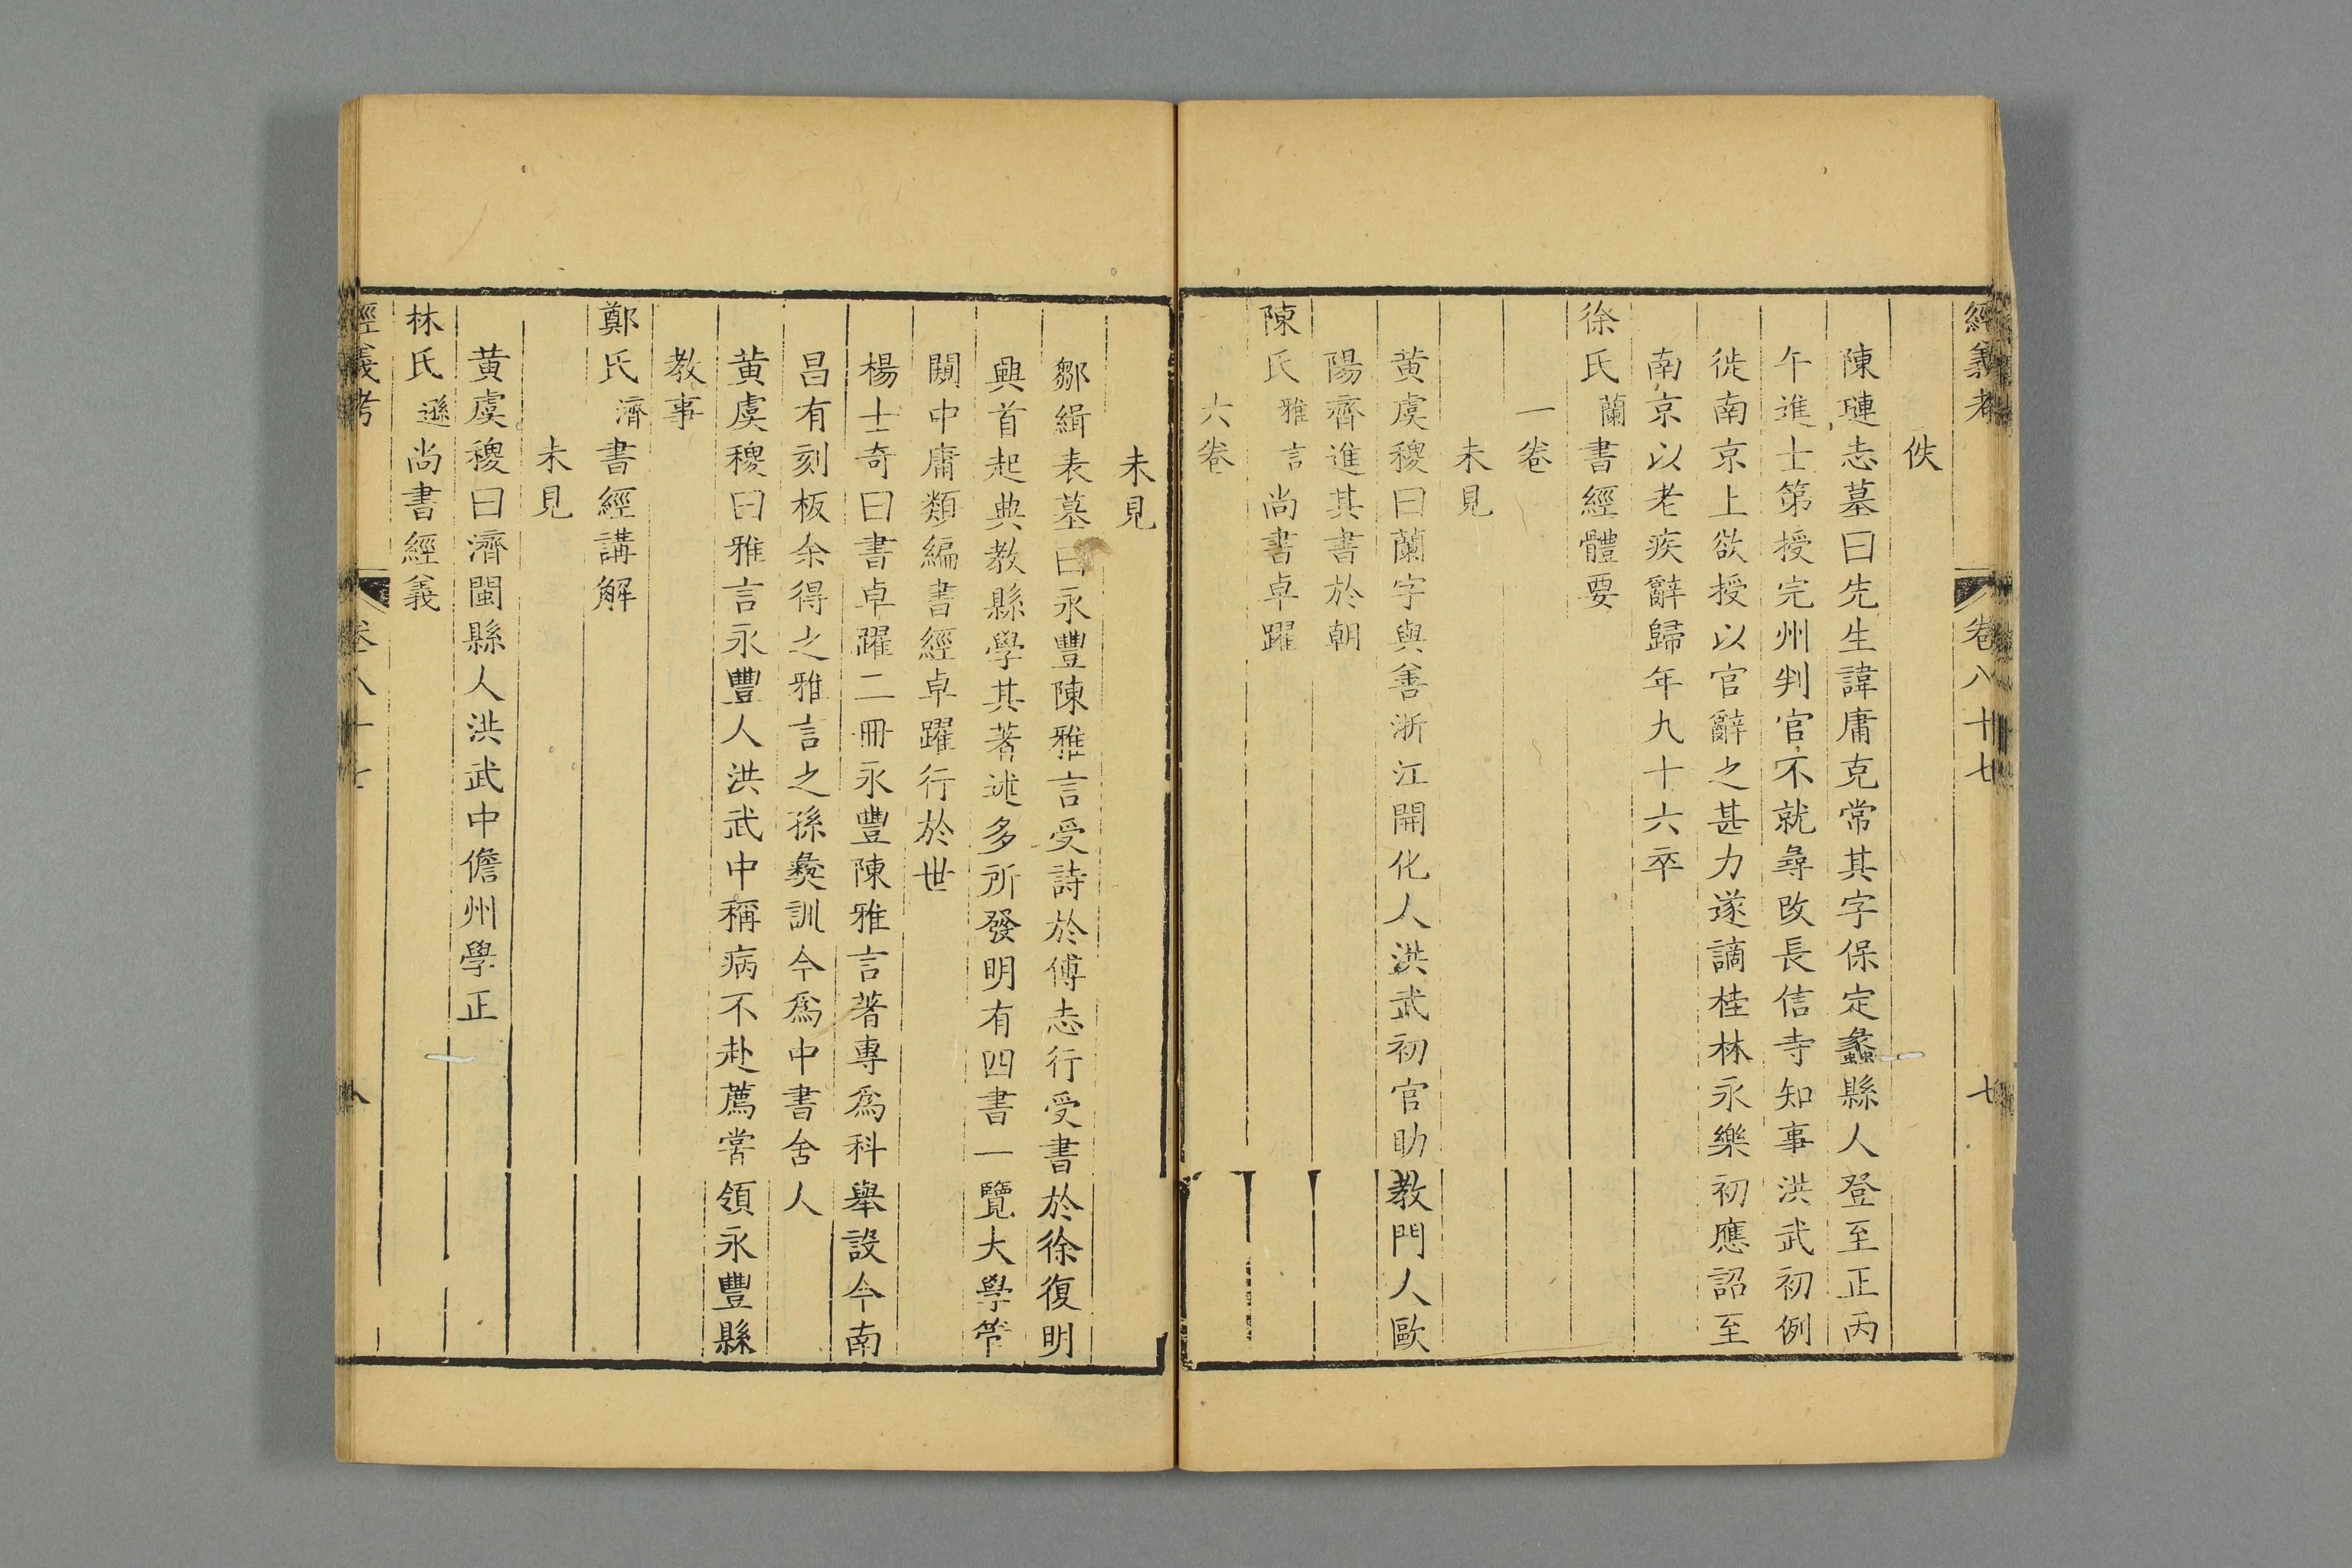 經義考 卷八十七 七
佚
陳璉志墓曰先生諱庸克常其字保定蠡縣人登至正丙
午進士第授完州判官不就尋改長信寺知事洪武初例
徙南京上欲授以官辭之甚力遂謫桂林永樂初應詔至
南京以老疾辭歸年九十六卒
徐氏蘭書經體要
一卷
未見
黄虞稷曰蘭字與善浙江開化人洪武初官助教門人歐
陽齊進其書於朝
陳氏雅言尚書卓躍
六卷
未見
鄒緝表墓曰永豐陳雅言受詩於傅志行受書於徐復明
興首起典教縣學其著述多所發明有四書一覽大學管
闚中庸類編書經卓躍行於世
楊士奇曰書卓躍二冊永豐陳雅言著專爲科舉設今南
昌有刻板余得之雅言之孫彝訓今爲中書舍人
黄虞稷曰雅言永豐人洪武中稱病不赴薦嘗領永豐縣
教事
鄭氏濟書經講解
未見
黄虞稷曰濟閩縣人洪武中儋州學正
林氏遜尚書經義
經義考 卷八十七 八